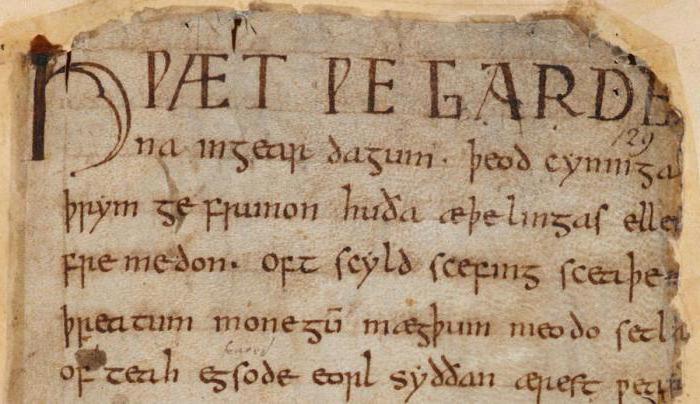 HǷÆT ǷE GARDE
na ingear dagum. þeod cyninga
þrym ge frunon huða æþelingas elle
fre medon. oft scyld scefing sceaþe
þreatum monegū mægþum meodo setla
of teah egsode eorl syððan ærest ƿe
129